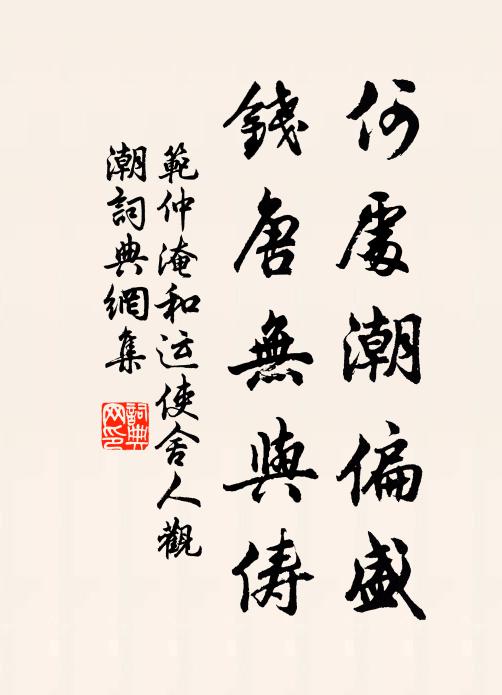 何處潮偏盛
錢唐無與儔
範仲淹和运使舍人觀
潮詞典網集
詞典
网印